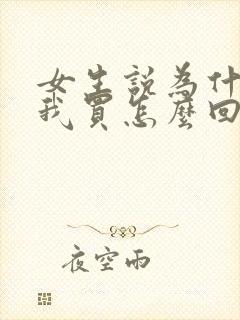 女生說為什
我買怎麼回
夜空雨